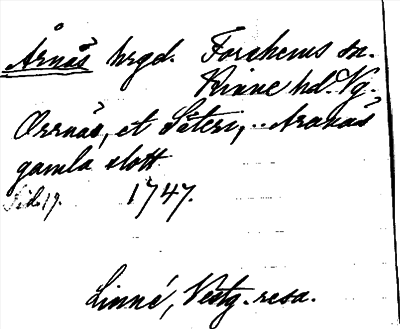 Årnäs hrgd. Forshems sn.
Kinne hd. Vg.
Örrnäs, et Säteri, .. Aranäs
gamla slott
Sid. 19. 1747.
Linné, Vestg. resa.